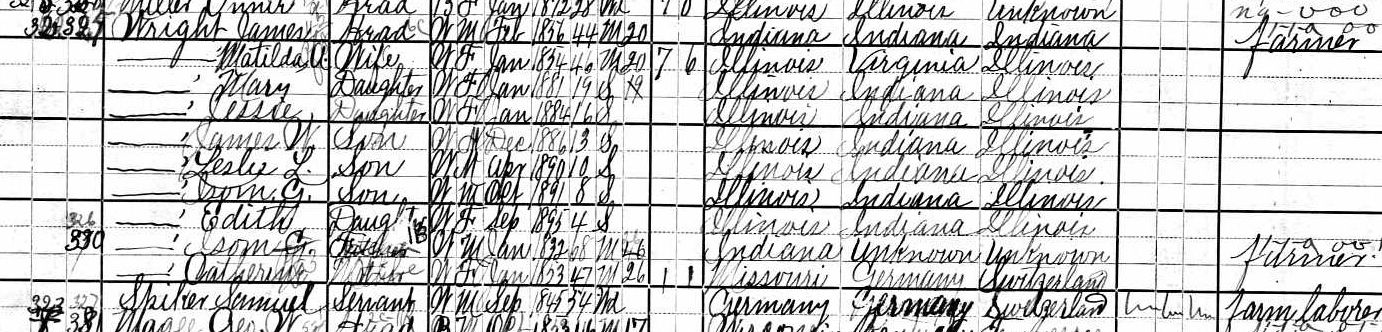 Head B F Jan 1872 28 Wd 1 0 Illinois Illinois Unknown
Wright James Head W M Feb 1856 44 M 20 Indiana Indiana Indiana Farmer
— Matilda A. Wife W F Jan 1854 46 M 20 7 6 Illinois Virginia Illinois
— Mary Daughter W F Jan 1881 19 S Illinois Indiana Illinois
— Jessie Daughter W F Jan 1884 16 S Illinois Indiana Illinois
— James W Son W M Dec 1886 13 S Illinois Indiana Illinois
— Leslie L. Son W M Apr 1890 10 S Illinois Indiana Illinois
— Isom G. Son W M Oct 1891 8 S Illinois Indiana Illinois
326 — Edith Daught W F Sep 1895 4 S Illinois Indiana Illinois
330 — Isom G W M Jan 1832 68 M 26 Indiana Unknown Unknown Farmer
— Catherine W F Jan 1853 47 M 26 1 1 Missouri Germany Switzerland
327 Spiker Samuel Servant W M Sep 1845 54 Wd Germany Germany Switzerland Farm laborer
Geo. W Head B M 17